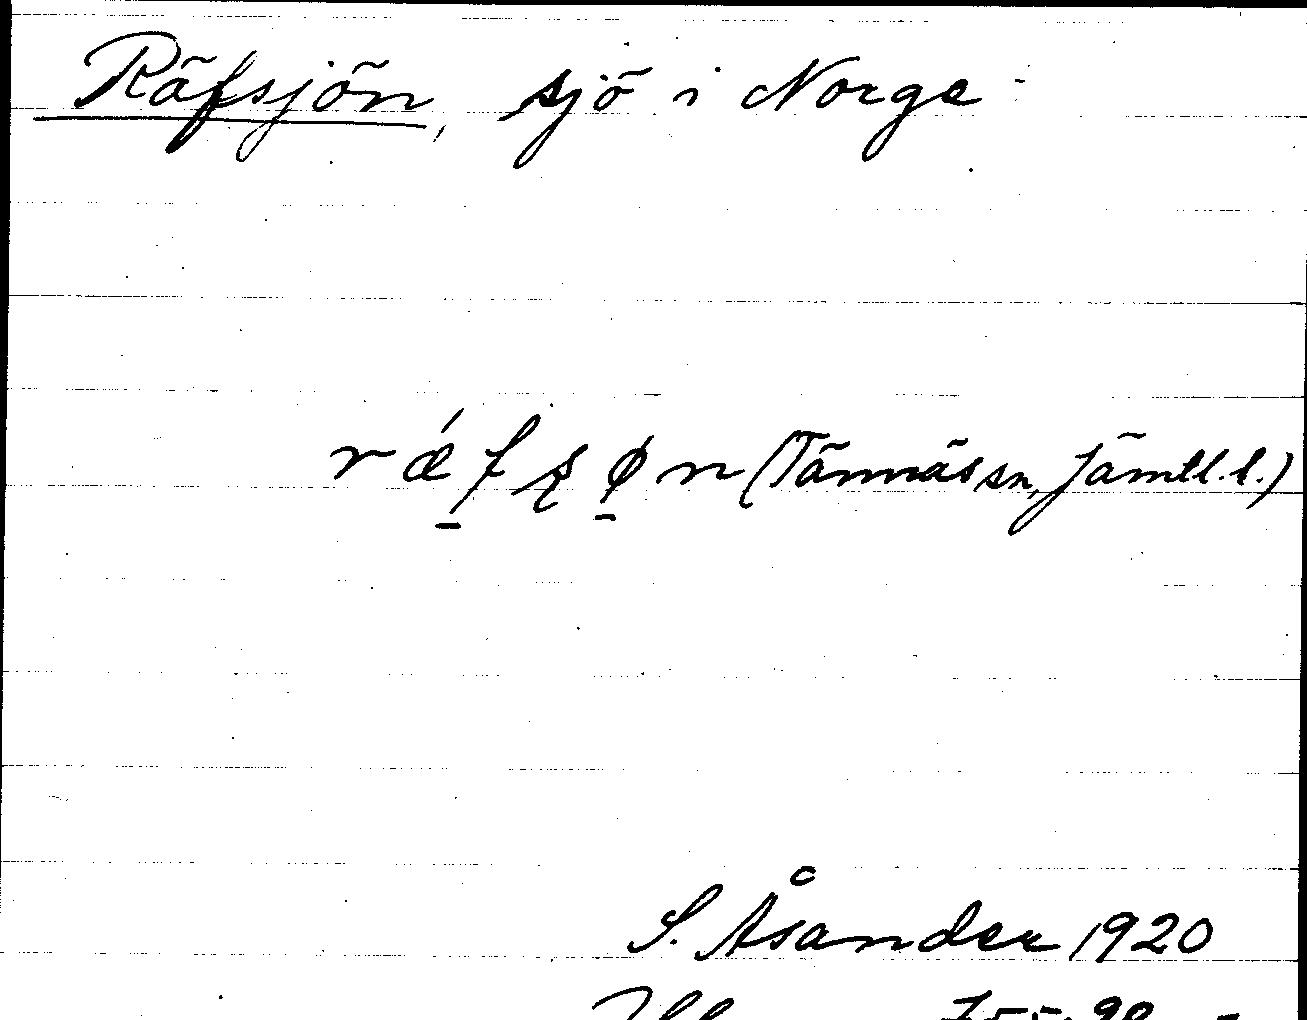 Räfsjön, sjö i Norge
rǽfʂøn (Tännäs sn, Jämtl. l.)
S. Åsander 1920